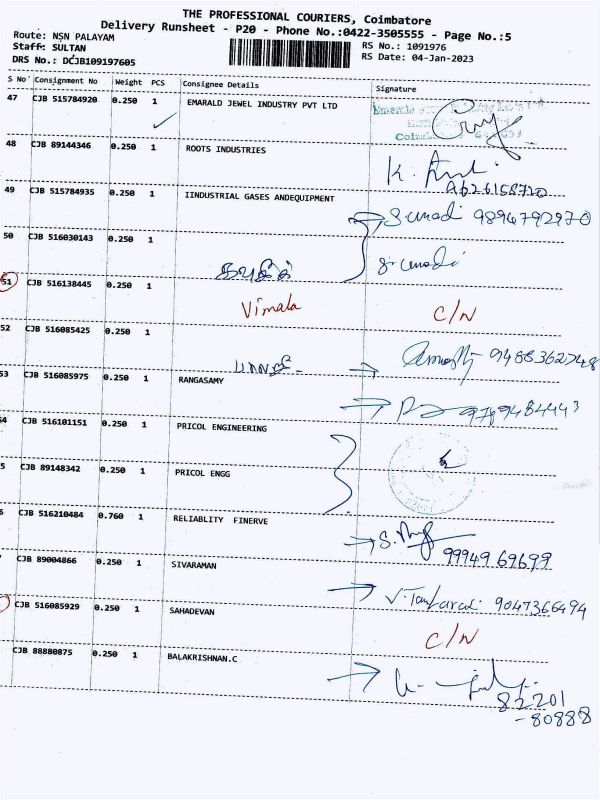 THE PROFESSIONAL COURIERS, Coimbatore
Delivery Runsheet - P20 - Phone No.:0422-3505555 - Page No.:5
Route: NSN PALAYAM
RS No.: 1091976
Staff: SULTAN
RS Date: 04-Jan-2023
DRS No.: DCJB109197605
S No Consignment No Weight PCS Consignee Details Signature
47 CJB 515784920 0.250 1 EMARALD JEWEL INDUSTRY PVT LTD
48 CJB 89144346 0.250 1 ROOTS INDUSTRIES
9626158720
49 CJB 515784935 0.250 1 IINDUSTRIAL GASES ANDEQUIPMENT
9894792970
50 CJB 516030143 0.250 1
51 CJB 516138445 0.250 1 Vimala C/N
52 CJB 516085425 0.250 1
9488362748
53 CJB 516085975 0.250 1 RANGASAMY
54 CJB 516101151 0.250 1 PRICOL ENGINEERING
5 CJB 89148342 0.250 1 PRICOL ENGG
6 CJB 516210484 0.760 1 RELIABLITY FINERVE
99949 69699
CJB 89004866 0.250 1 SIVARAMAN
9047366494
CJB 516085929 0.250 1 SAHADEVAN C/N
CJB 88880875 0.250 1 BALAKRISHNAN.C
82201
-80888